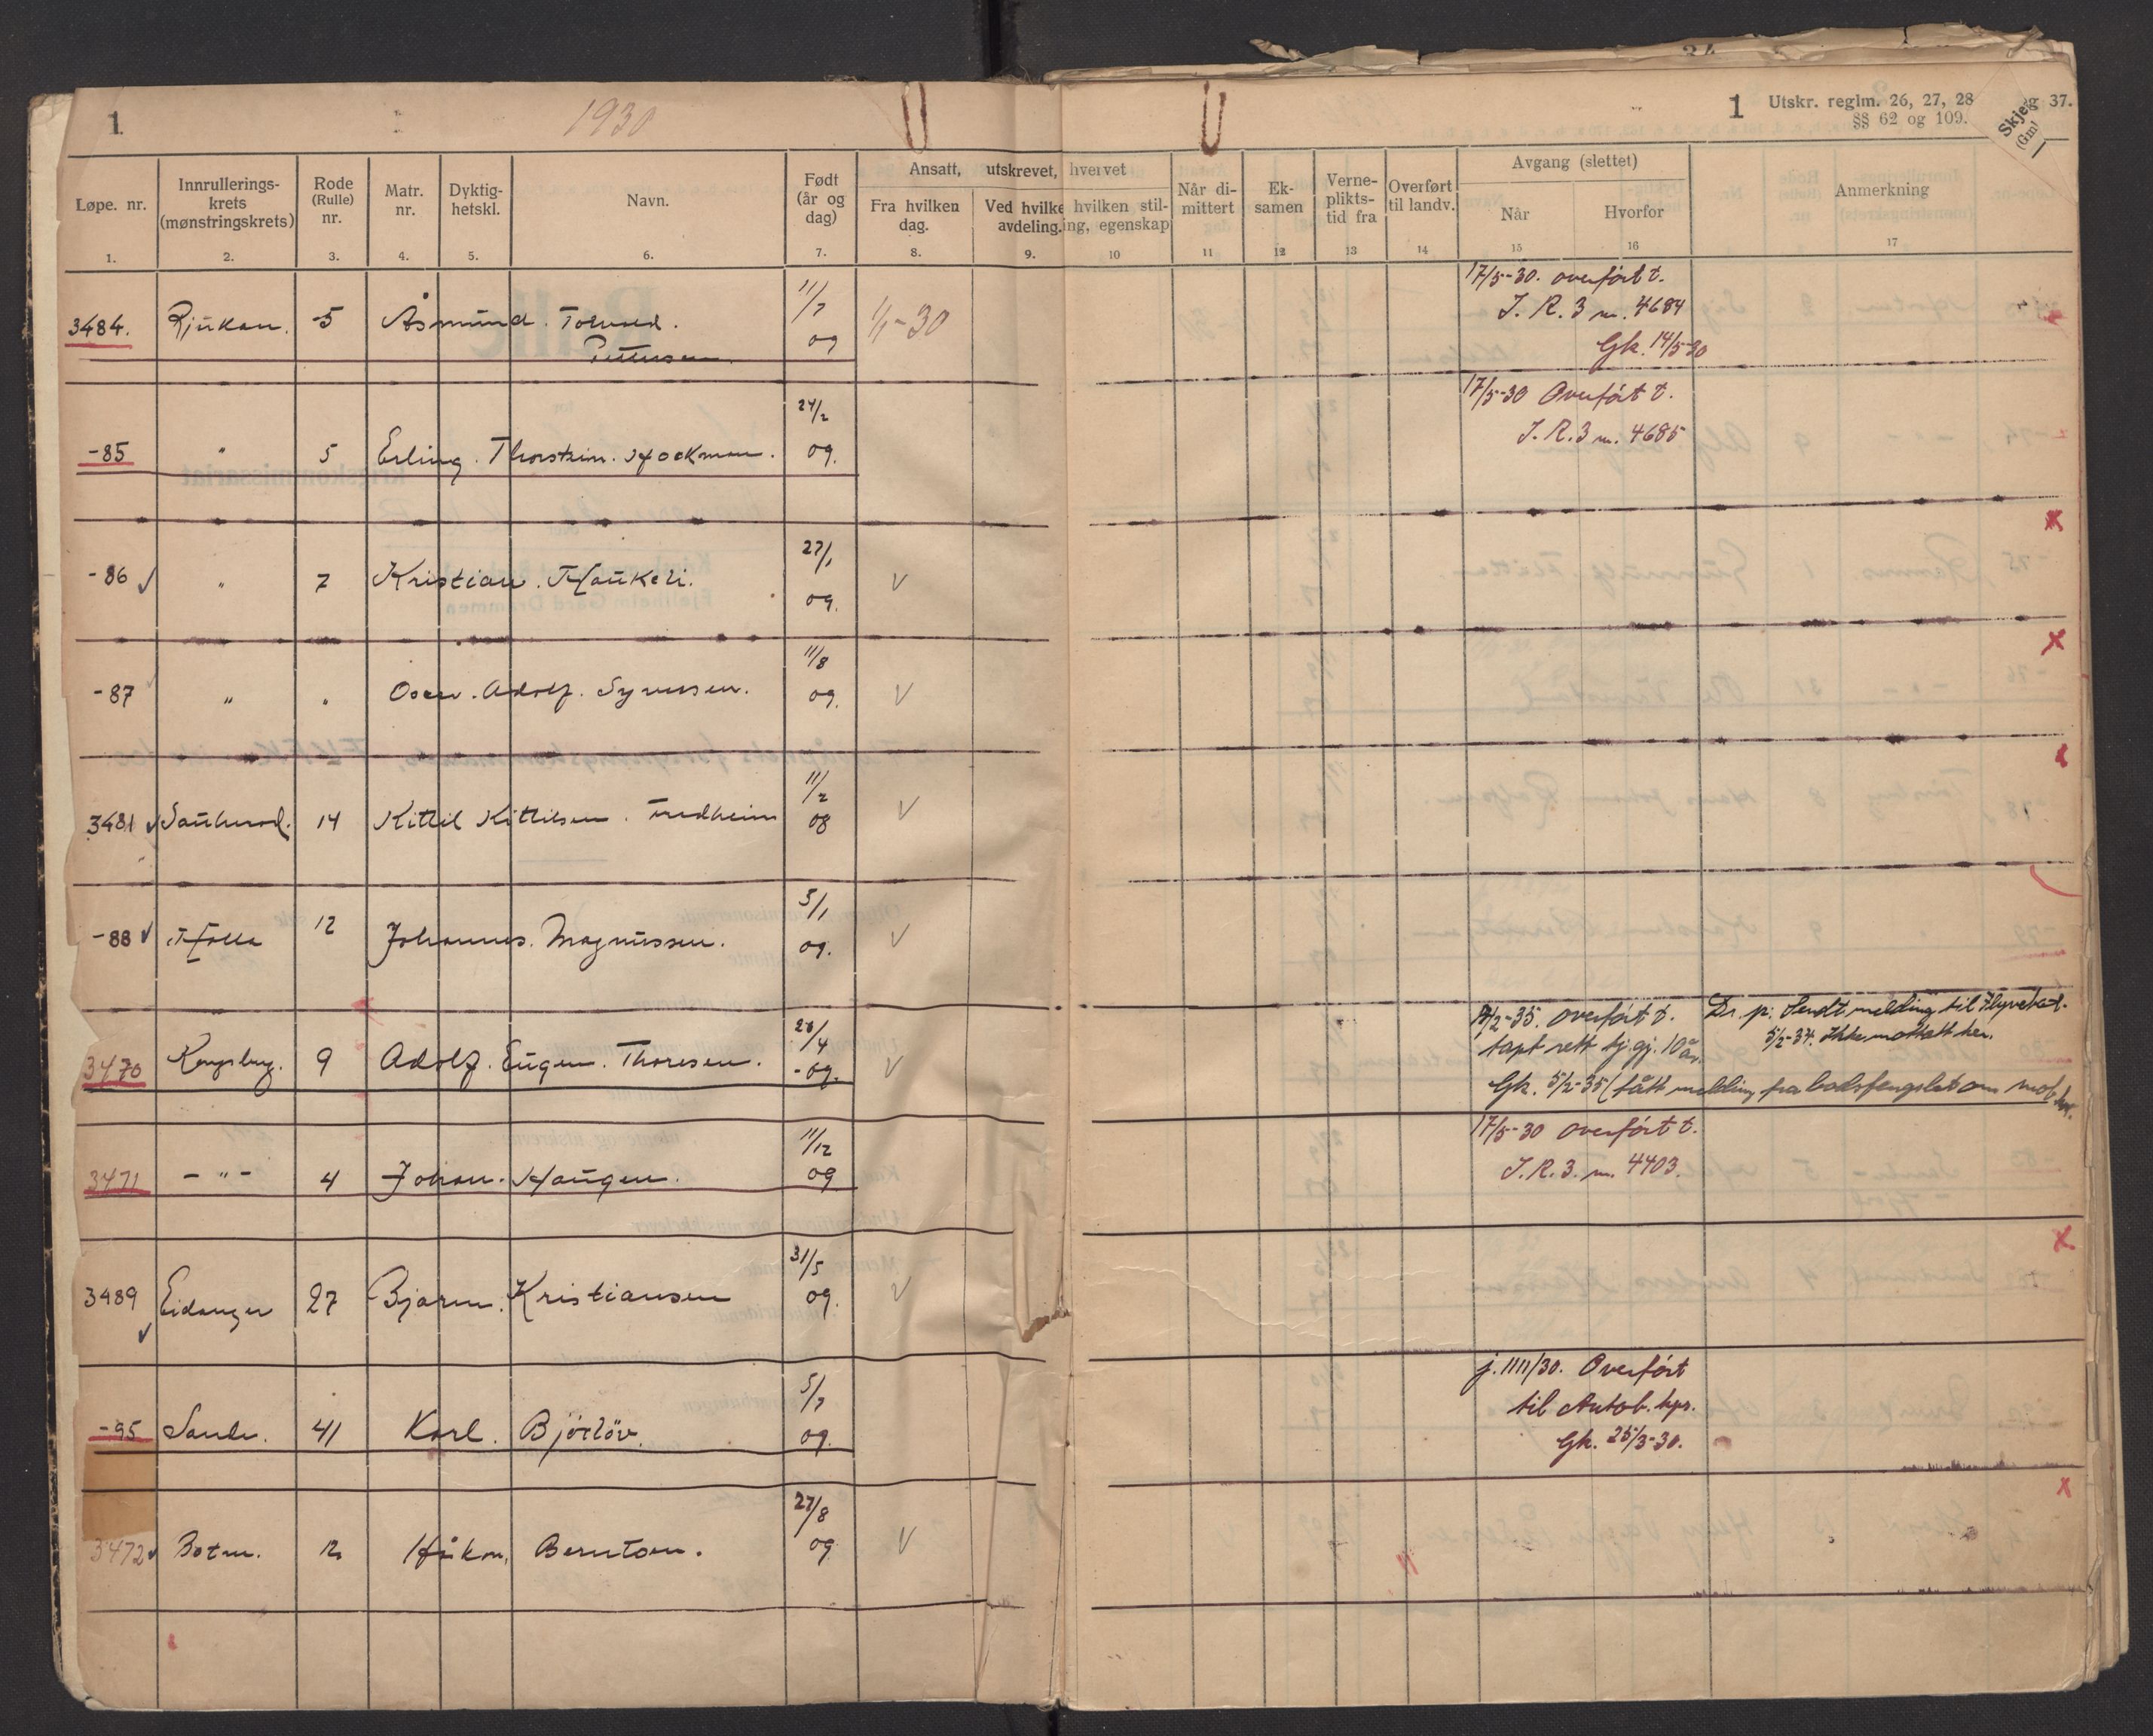 1
1930
1 Utskr. reglm. 26, 27, 28
§§ 62 og 109.
Skje g 37.
(Gml
Løpe. nr.
Innrullerings-
krets
(mønstringskrets)
Rode
(Rulle)
nr.
Matr.
nr.
Dyktig-
hetskl.
Navn.
Født
(år og
dag)
Ansatt, utskrevet, hvervet
Fra hvilken
dag.
Ved hvilke
avdeling.
hvilken stil-
ing, egenskap
Når di-
mittert
Ek-
samen
Verne-
plikts-
tid fra
Overført
til landv.
Avgang (slettet)
Når
Hvorfor
Anmerkning
1. 2. 3. 4. 5. 6. 7. 8. 9. 10 11 12 13 14 15 16 17
3484. Rjukan. 5 Åsmund. Tolvsed. 11/7 09 1/1-30 17/5-30. overført t.
Pettersen. J. R. 3 m. 4684
Gk. 14/5-30
-85 " 5 Erling. Thorstein. Hockman. 24/2 09. 17/5-30 Overført t.
J. R. 3 m. 4685
-86 " 7 Kristian. Haukeli. 27/1 09. V
-87 " " Oscar. Adolf. Syversen. 11/8 09. V
3481 Sauherad. 14 Kittil Kittilsen. Tredheim 11/2 08 V
-88 Holla 12 Johannes. Magnussen. 5/1 09. V
3470 Kongsberg. 9 Adolf. Eugen. Thoresen. 28/4 -09. V /2-35. overført t. Dr. p. Sendt melding til Flyvebat.
tapt rett tj. gj. 10 år. 5/2-34. Ikke mottatt her.
Gk. 5/2-35 (fått melding fra botsfengslet om
3471 - " - 4 Johan. Haugen. 11/12 09 17/5-30 overført t.
J. R. 3. m. 4403.
3489 Eidanger 27 Bjarne. Kristiansen 31/5 09. V
-95 Sande. 41 Karl. Bjørløv. 5/7 09. j. 1111/30. Overført
til Autob. kpr.
Gk. 25/3-30.
3472 Botne. 12 Håkon. Berntsen. 27/8 09 V